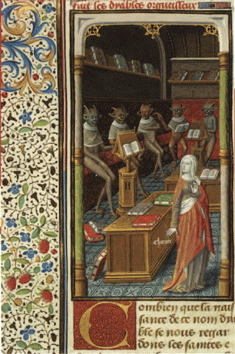 fait ses diables orgueilleux
Combien que la nais
sance de ce nom dia
ble se nous regar
dons les saintes e